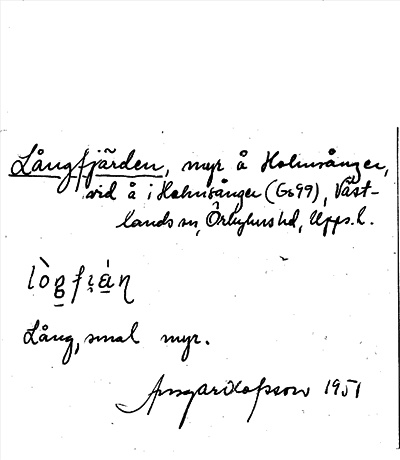 Långfjärden, myr å Holmsånger,
vid å i Holmsånger (Go99), Väst-
lands sn, Örbyhus hd, Upps. l.
lògfi̯án
Lång, smal myr.
Ansgar Olofsson 1951